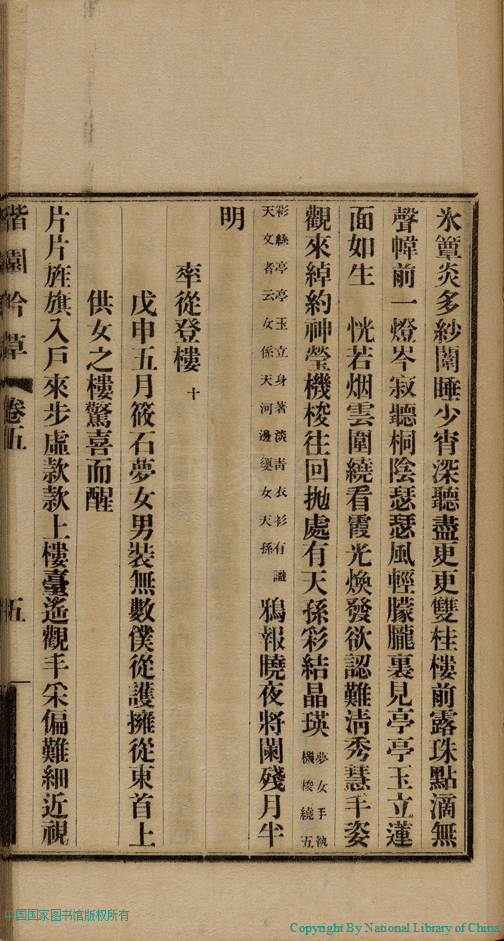 氷簟炎多紗闈睡少宵深聽盡更更雙桂樓前露珠點滴無
聲幃前一燈岑寂聽桐陰瑟瑟風輕朦朧裏見亭亭玉立蓮
面如生　恍若烟雲圍繞看霞光煥發欲認難淸秀慧手姿
觀來綽約神瑩機梭往回抛處有天孫彩結晶瑛夢女手執機梭繞五
彩絲亭亭玉立身著淡靑衣衫有識天文者云女係天河邊嬃女天孫　鴉報曉夜將闌殘月半
明
率從登樓十
戊申五月筱石夢女男裝無數僕從護擁從東首上
供女之樓驚喜而醒
片片旌旗入戶來步虛款款上樓臺遙觀手采偏難細近視
偕園吟草 卷五　五
中国国家图书馆版权所有
Copyright By National Library of China